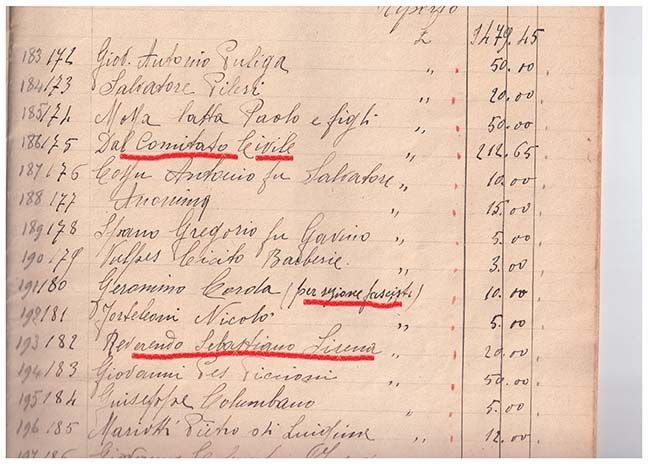 Riporto £ 3479.45
183 172 Giov. Antonio Puliga " 50.00
184 173 Salvatore Pileri " 20.00
185 174 Molla Satta Paolo e figli " 50.00
186 175 Dal Comitato Civile " 212.65
187 176 Cossu Antonio fu Salvatore " 10.00
188 177 Anonimo " 15.00
189 178 Spano Gregorio fu Gavino " 5.00
190 179 Vulpes Barbiere " 3.00
191 180 Geronimo Corda (per sezione fascisti) 10.00
192 181 Torteleoni Nicolò " 5.00
193 182 Reverendo Sebastiano " 20.00
194 183 Giovanni Pes " 50.00
195 184 Guiseppe Columbano " 5.00
196 185 Mariotti Pietro di " 12.00
197 186 Giovanni